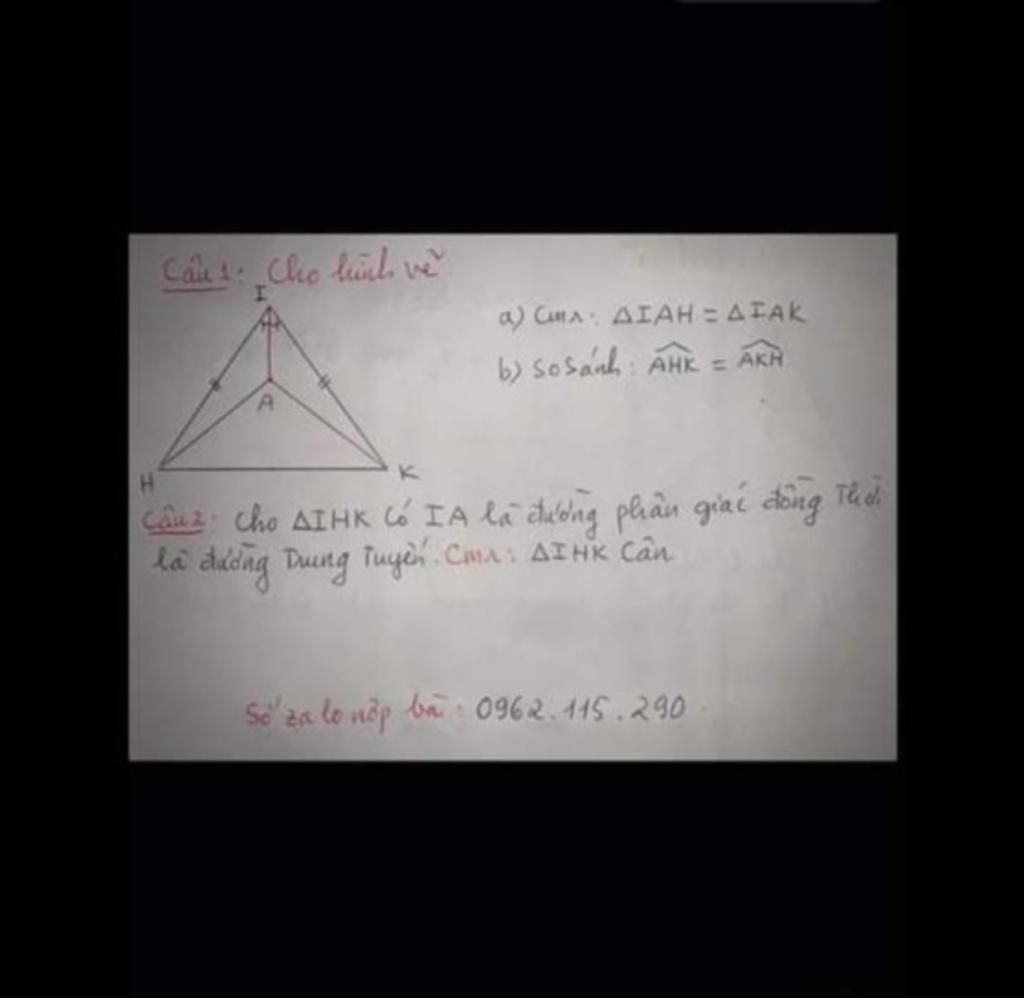 Câu 1: Cho hình vẽ
I
A
H
K
a) Cmr: ΔIAH = ΔIAK
b) So Sánh: \widehat{AHK} = \widehat{AKH}
Câu 2: Cho ΔIHK Có IA là đường phân giác đồng Thời
là đường Trung Tuyến. Cmr: ΔIHK Cân
Số zalo nộp bà: 0962.115.290